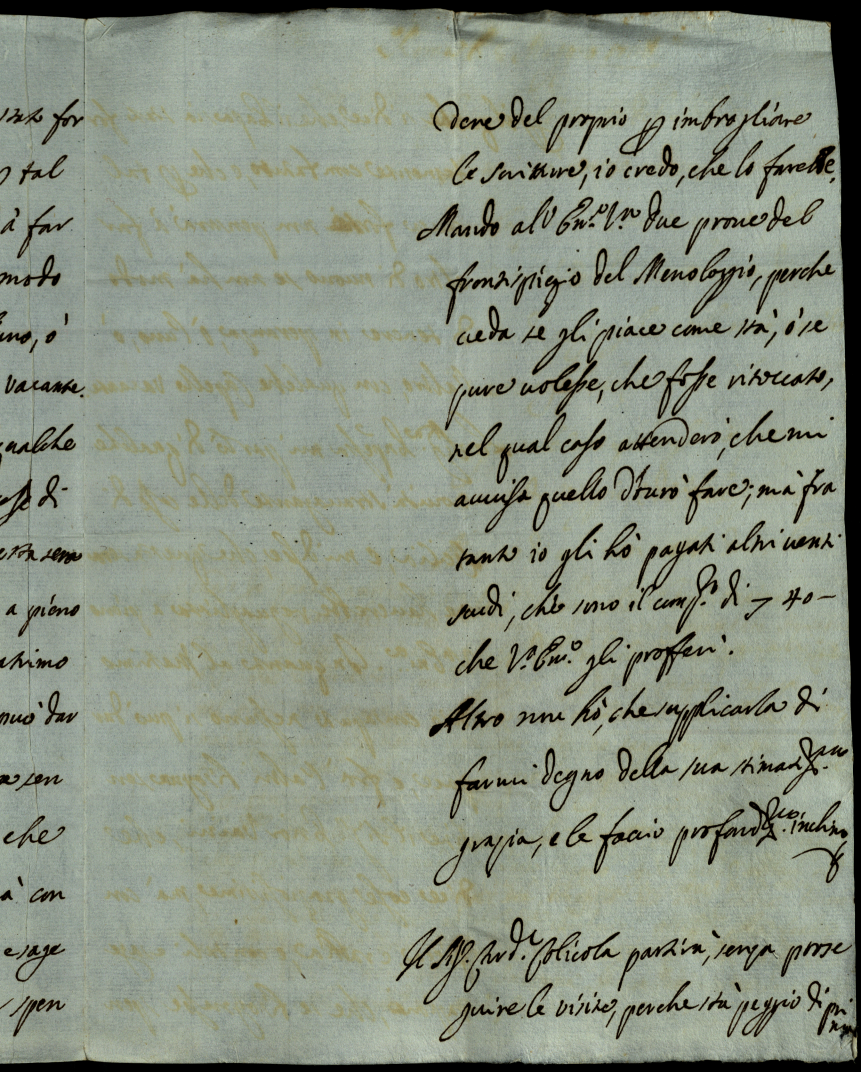 for
tal
à far
modo
uno, ò
vacante.
qualche
di
a pieno
dar
che
à con
spen
dere del proprio p imbrogliare
le scritture, io credo, che lo farebbe.
Mando all' Em.ª V.ra due prove del
frontispizio del Menologgio, perche
veda se gli piace come stà, ò se
pure volesse, che fosse ritoccato,
nel qual caso attenderò, che mi
avvisa quello dovrò fare; mà fra
tanto io gli hò pagati altri venti
scudi, che sono il comp.to di 40 –
che V.ª Em.ª gli profferì.
Altro non hò, che supplicarla di
farmi degno della sua stimadiss.ma
grazia, e le faccio profondiss.mo inchino
Il Sig.r Card.l Colicola partirà, senza prose
guire le visite, perche stà peggio di pri
ma